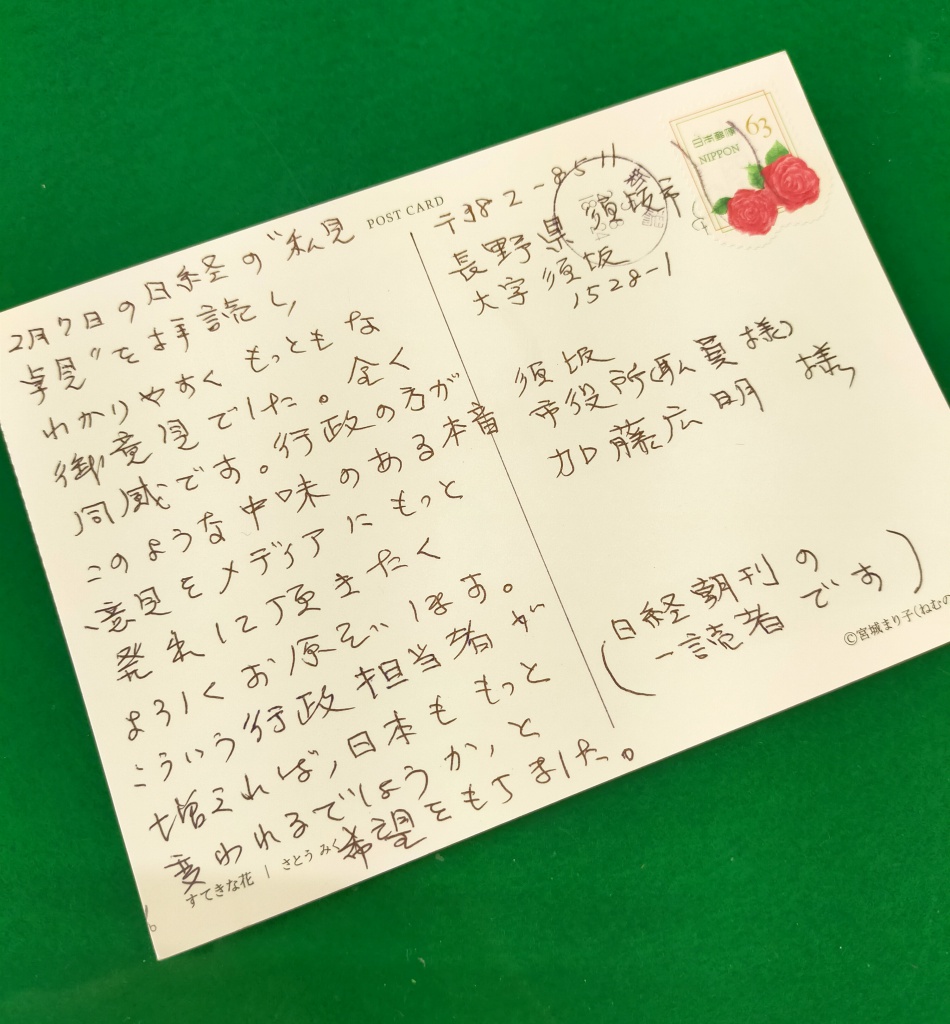 2月7日の日経の“私見
卓見”を拝読し
わかりやすくもっともな
御意見でした。全く
同感です。行政の方が
このような中味のある本音
意見をメディアにもっと
発表して頂きたく
よろしくお願いします。
こういう行政担当者が
増えれば、日本ももっと
変われるでしょうか、と
希望をもちました。
すてきな花 | さとう みく
POST CARD
〒382-8511
長野県 須坂市
大字須坂
1528-1
須坂
市役所(職員様)
加藤広明 様
(日経朝刊の
一読者です)
©宮城まり子(ねむの
日本郵便
NIPPON
63